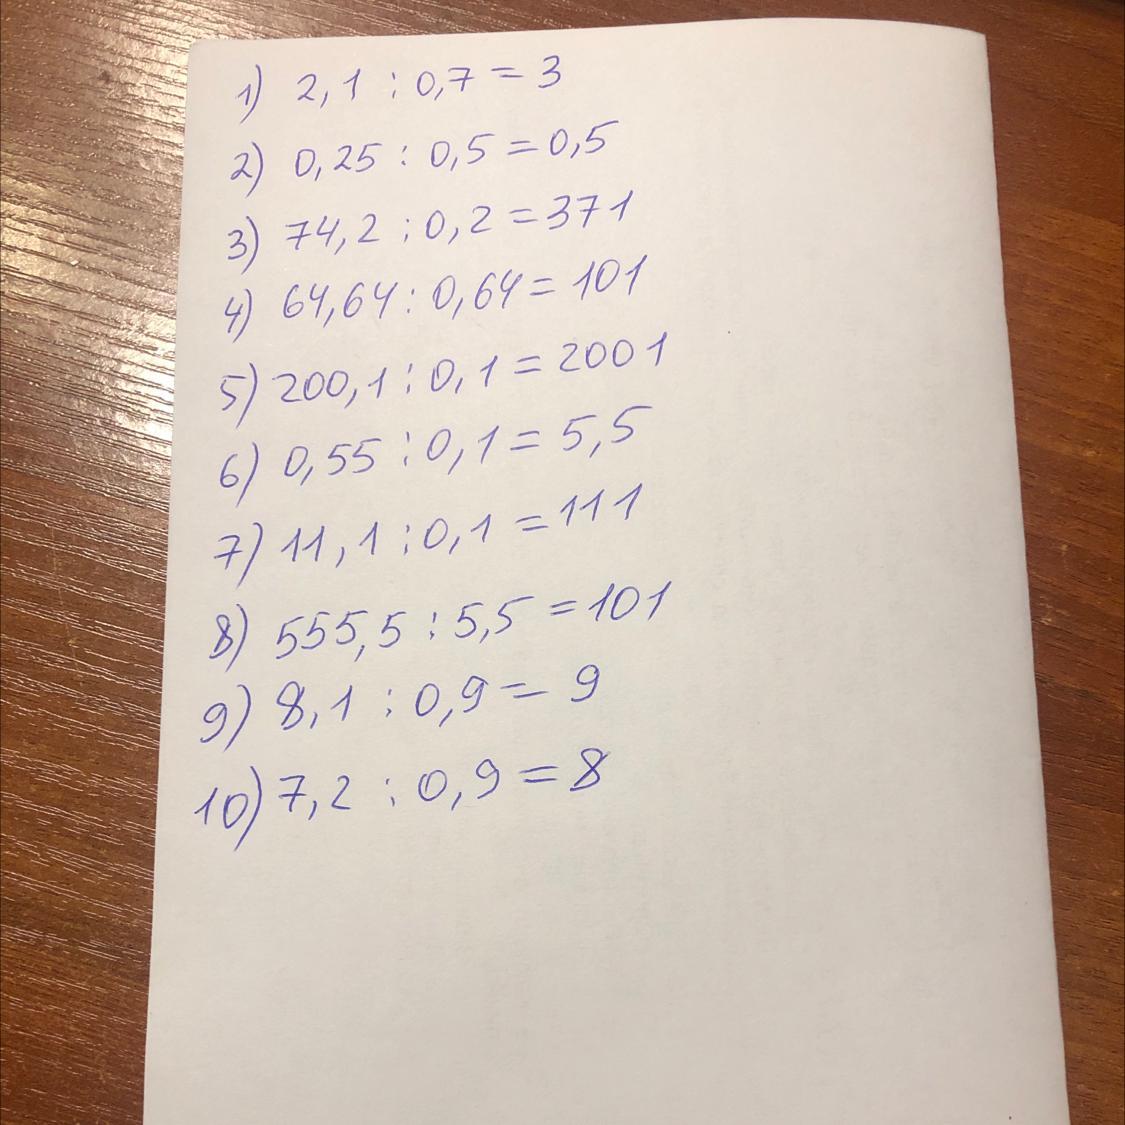 1) 2,1 : 0,7 = 3
2) 0,25 : 0,5 = 0,5
3) 74,2 : 0,2 = 371
4) 64,64 : 0,64 = 101
5) 200,1 : 0,1 = 2001
6) 0,55 : 0,1 = 5,5
7) 11,1 : 0,1 = 111
8) 555,5 : 5,5 = 101
9) 8,1 : 0,9 = 9
10) 7,2 : 0,9 = 8